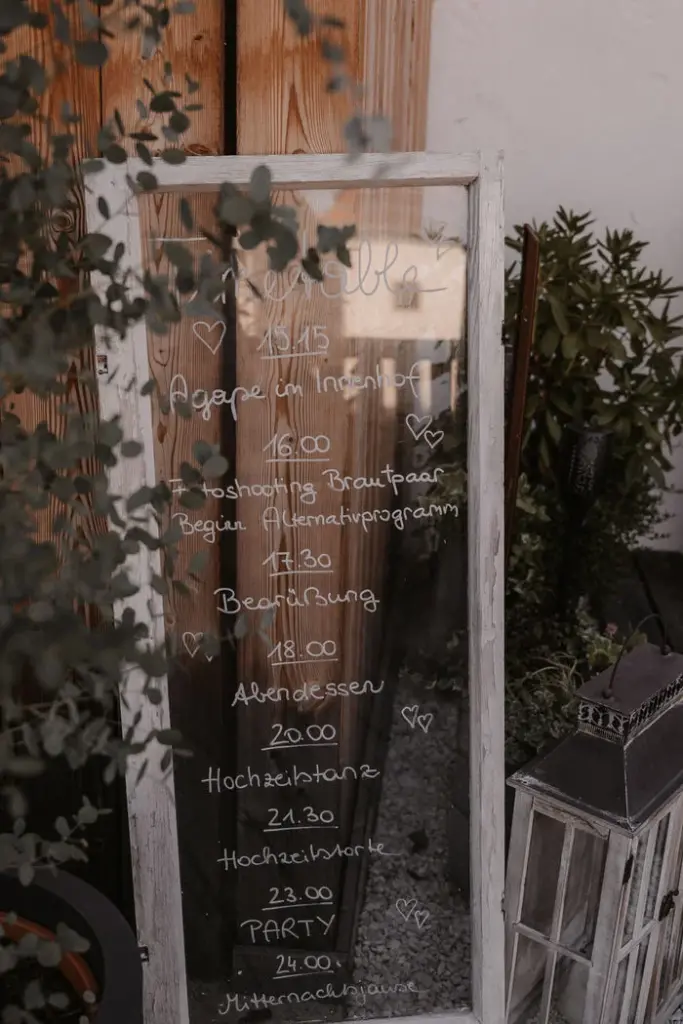 15.15
Agape im Innenhof
16.00
Fotoshooting Brautpaar
Beginn Alternativprogramm
17.30
Begrüßung
18.00
Abendessen
20.00
Hochzeitstanz
21.30
Hochzeitstorte
23.00
PARTY
24.00
Mitternachtsjause